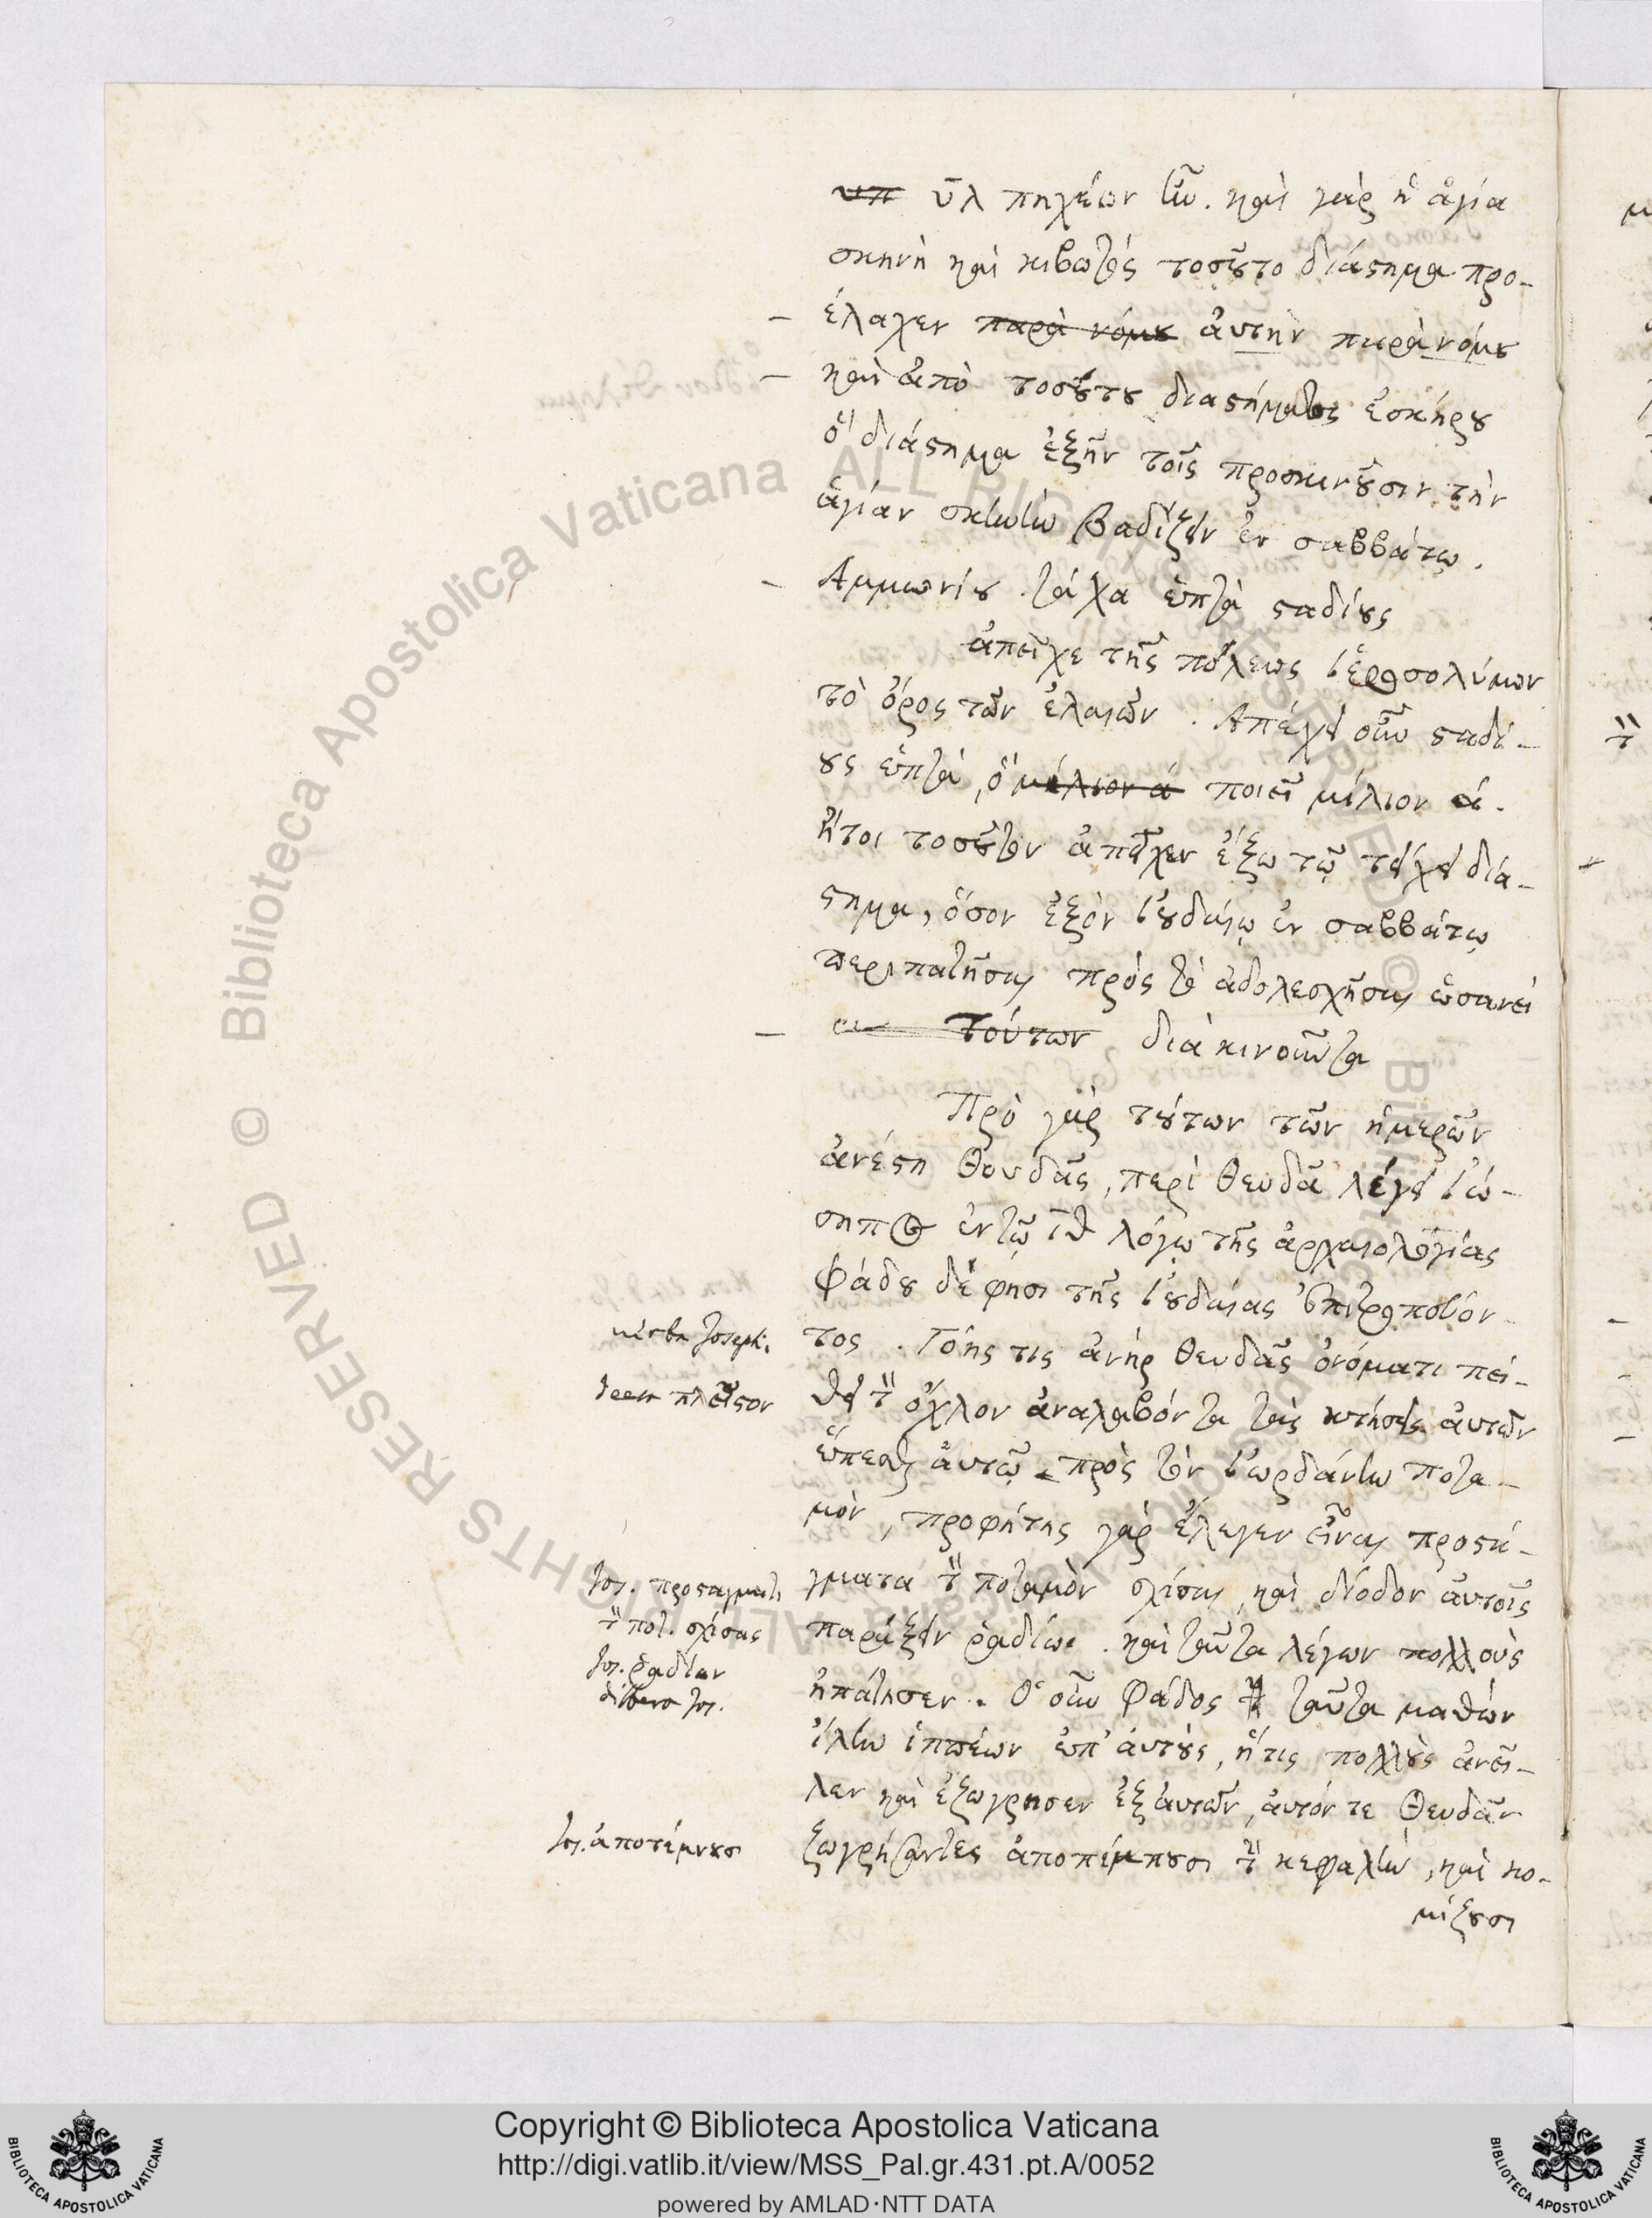 υπ ῡλ πηχέων ἦν. καὶ γὰρ ἡ ἁγία
σκηνὴ καὶ κιβωτὸς τοσοῦτο διάστημα προ-
έλαχεν παρὰ νόμου ἀυτὴν παρὰ νόμου
καὶ ἀπὸ τοσούτου διαστήματος ἐσκήρου
ὃ διάστημα ἐξῆν τοῖς προσκυνοῦσιν τὴν
ἁγίαν σκηνὴν βαδίζειν ἐν σαββάτῳ.
Αμμωνίου τάχα ἑπτὰ σταδίους
ἀπεῖχε τῆς πόλεως ἱεροσολύμων
τὸ ὄρος τῶν ἐλαιῶν. Απέχει οὖν σταδί-
ους ἑπτὰ, ὃ μίλιον ά ποιεῖ μίλιον ά.
ἤτοι τοσοῦτον ἀπεῖχεν ἔξω τῷ τείχει διά-
στημα, ὅσον ἐξὸν ἰουδαίῳ ἐν σαββάτῳ
περιπατῆσαι πρὸς τὸ ἀδολεσχῆσαι ὡσανεὶ
Τούτων διὰ κινοῦντα
Πρὸ γὰρ τούτων τῶν ἡμερῶν
ἀνέστη Θουδᾶς, περὶ Θευδᾶ λέγει ἰώ-
σηπος ἐν τῷ ιθ λόγῳ τῆς ἀρχαιολογίας
Φάδου δέ φησι τῆς ἰουδαίας ἐπιτροπεύον-
τος. Γόης τις ἀνὴρ Θευδᾶς ὀνόματι πεί-
verba Josephi.
θει τὸν ὄχλον ἀναλαβόντα τὰς κτήσεις ἀυτῶν
deest πλεῖστον
ἕπεσθαι ἀυτῷ πρὸς τὸν ἰωρδάνην ποτα-
μὸν, προφήτης γὰρ ἔλεγεν εἶναι προστά-
γματα τὸν ποταμὸν σχίσαι, καὶ δίοδον ἀυτοῖς
Jos. προσταγματι
τὸν ποτ. σχίσας
παρέξειν ῥαδίως. καὶ ταῦτα λέγων πολλοὺς
Jos. ῥαδίαν
ἠπάτησεν. Ὁ οὖν Φάδος ταῦτα μαθὼν
ἴλην ἱππέων ἐπ' ἀυτοὺς, ἥτις πολλοὺς ἀνεῖ-
λεν καὶ ἐζώγρησεν ἐξ ἀυτῶν, ἀυτόν τε Θευδᾶν
ζωγρήσαντες ἀποπέμπουσι τὴν κεφαλὴν, καὶ κο-
Jos. ἀποτέμνουσι
μίζουσι
Copyright © Biblioteca Apostolica Vaticana
http://digi.vatlib.it/view/MSS_Pal.gr.431.pt.A/0052
powered by AMLAD·NTT DATA
BIBLIOTECA APOSTOLICA VATICANA
BIBLIOTECA APOSTOLICA VATICANA
© Biblioteca Apostolica Vaticana ALL RIGHTS RESERVED © Biblioteca Apostolica Vaticana ALL RIGHTS RESERVED